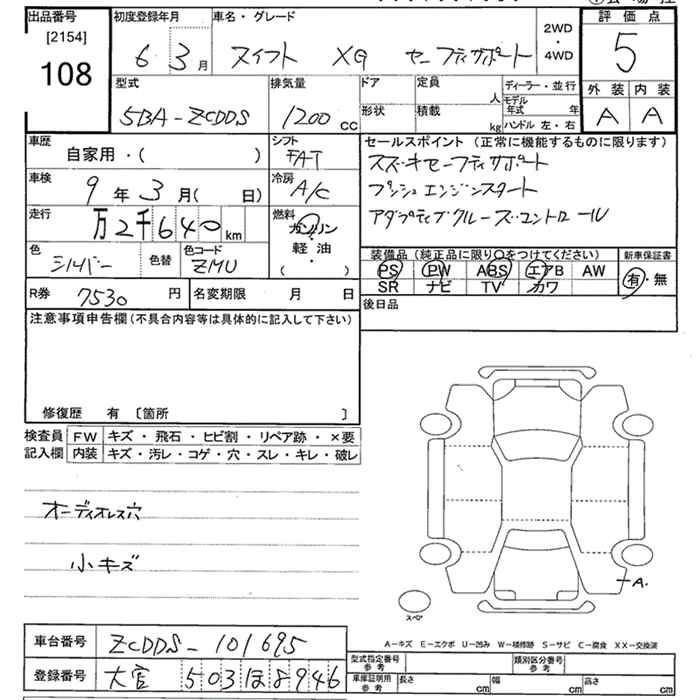 出品番号
[2154]
108
初度登録年月
6 3月
車名・グレード
スイフト XG セーフティサポート
2WD
・
4WD
評価点
5
外装 内装
A A
型式
5BA-ZCDDS
排気量
1200 cc
ドア
形状
定員
人
積載
kg
ディーラー・並行
モデル年式 年
ハンドル 左・右
車歴
自家用・( )
シフト
FAT
車検
9年3月( 日)
冷房
A/C
走行
万2千640km
燃料
ガソリン
・
軽油
( )
色
シルバー
色替
色コード
ZMU
R券 7530円
名変期限 月 日
セールスポイント (正常に機能するものに限ります)
スズキセーフティサポート
プッシュエンジンスタート
アダプティブクルーズコントロール
装備品 (純正品に限り○をつけてください)
PS PW ABS エアB AW
SR ナビ TV カワ
新車保証書
有・無
後日品
注意事項申告欄(不具合内容等は具体的に記入して下さい)
修復歴 有 〔箇所 〕
検査員記入欄
FW キズ・飛石・ヒビ割・リペア跡・×要
内装 キズ・汚レ・コゲ・穴・スレ・キレ・破レ
オーディオレス穴
小キズ
A
スペア
車台番号 ZCDDS-101695
登録番号 大宮 503 ほ 8946
A-キズ E-エクボ U-凹み W-補修跡 S-サビ C-腐食 XX-交換済
型式指定番号 参考
類別区分番号 参考
車庫証明用 参考
長さ cm 幅 cm 高さ cm